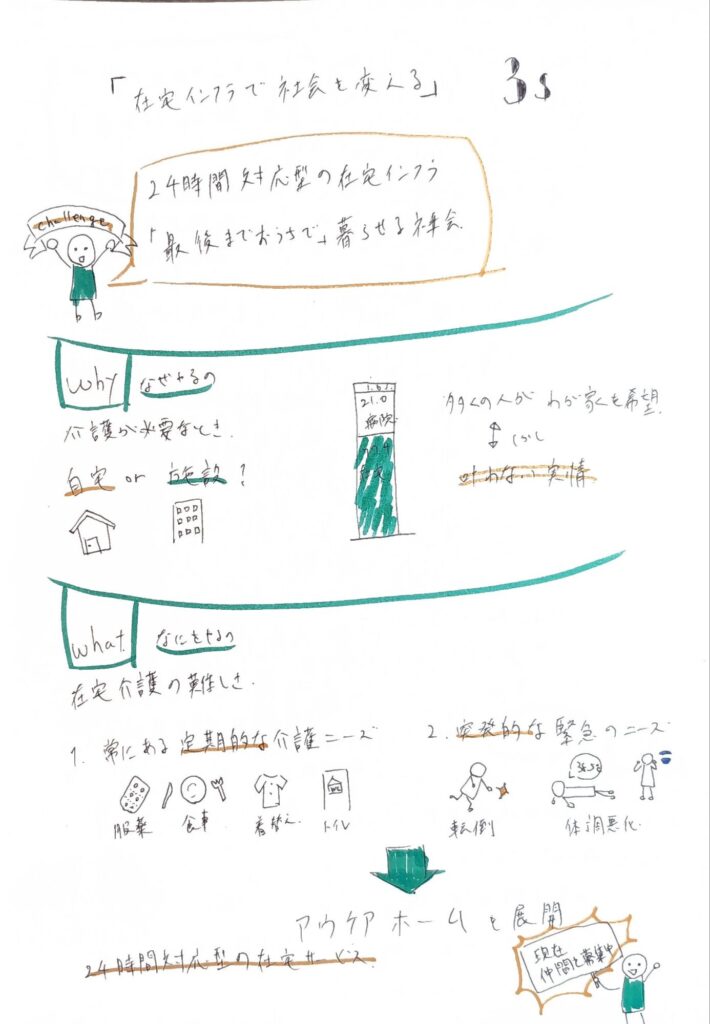 「在宅インフラで社会を変える」
3s
24時間対応型の在宅インフラ
「最後までおうちで」暮らせる社会
challenge
why なぜやるの
介護が必要なとき。
自宅 or 施設?
21.0
病院
多くの人が わが家を希望
しかし
叶わない実情
what なにをするの
在宅介護の難しさ。
1. 常にある定期的な介護ニーズ
服薬 食事 着替え トイレ
2. 突発的な緊急のニーズ
転倒 体調悪化
アウケアホームを展開
24時間対応型の在宅サービス
現在
仲間を募集中